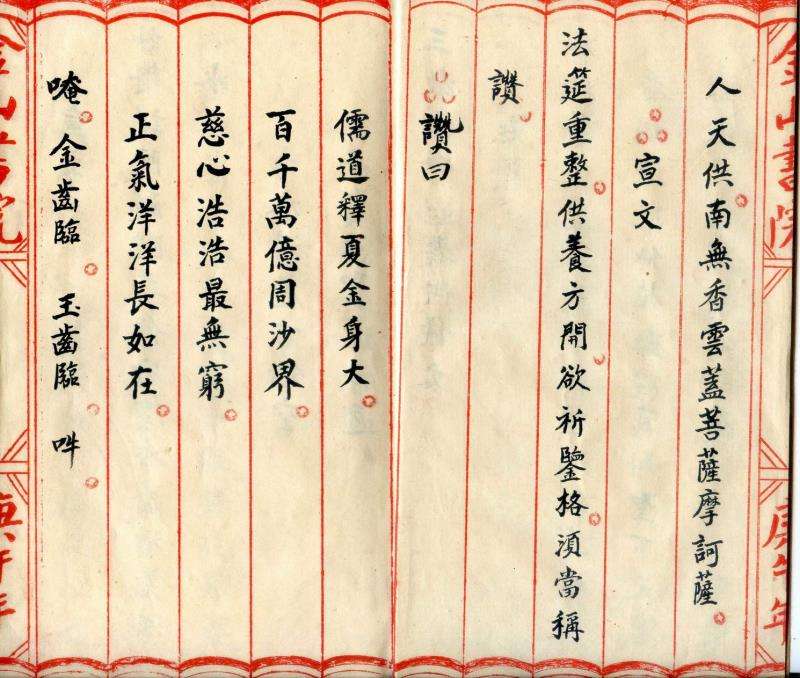 人天供南無香雲蓋菩薩摩訶薩
宣文
法筵重整供養方開欲祈鑒格須當稱
讚
讚曰
儒道釋夏金身大
百千萬億周沙界
慈心浩浩最無窮
正氣洋洋長如在
唵 金齒臨 玉齒臨 吽